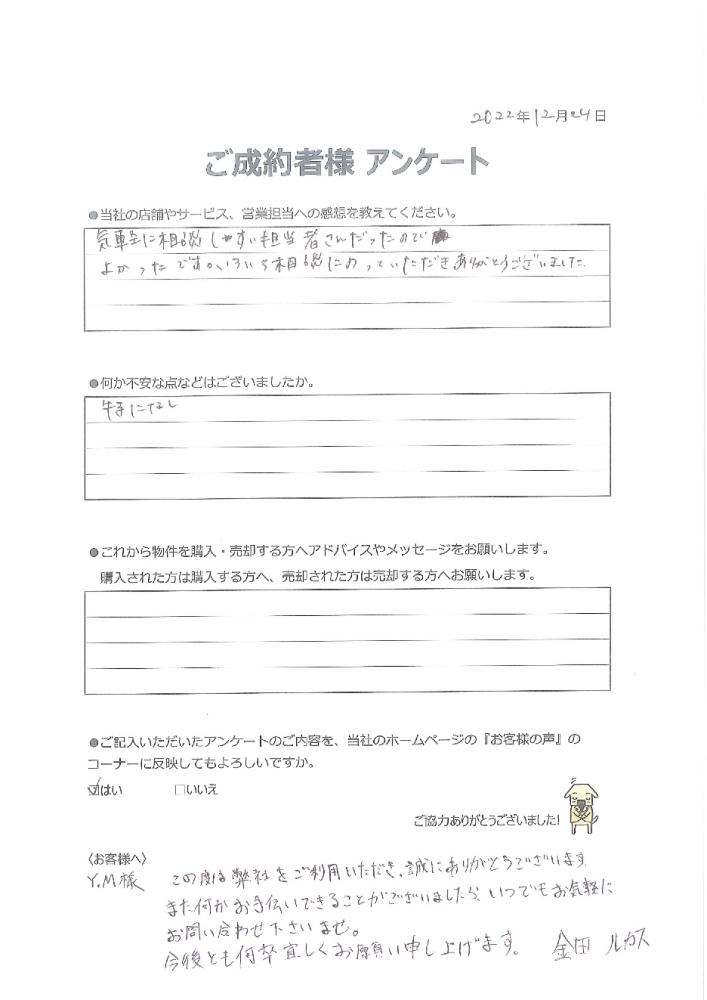 2022年12月24日
ご成約者様 アンケート
●当社の店舗やサービス、営業担当への感想を教えてください。
気軽に相談しやすい担当者さんだったので
よかったです。いろいろ相談にのっていただきありがとうございました。
●何か不安な点などはございましたか。
特になし
●これから物件を購入・売却する方へアドバイスやメッセージをお願いします。
購入された方は購入する方へ、売却された方は売却する方へお願いします。
●ご記入いただいたアンケートのご内容を、当社のホームページの『お客様の声』の
コーナーに反映してもよろしいですか。
☑はい □いいえ
ご協力ありがとうございました!
〈お客様へ〉
Y.M様 この度は弊社をご利用いただき、誠にありがとうございます。
また何かお手伝いできることがございましたら、いつでもお気軽に
お問い合わせ下さいませ。
今後とも何卒宜しくお願い申し上げます。 金田 ルカス